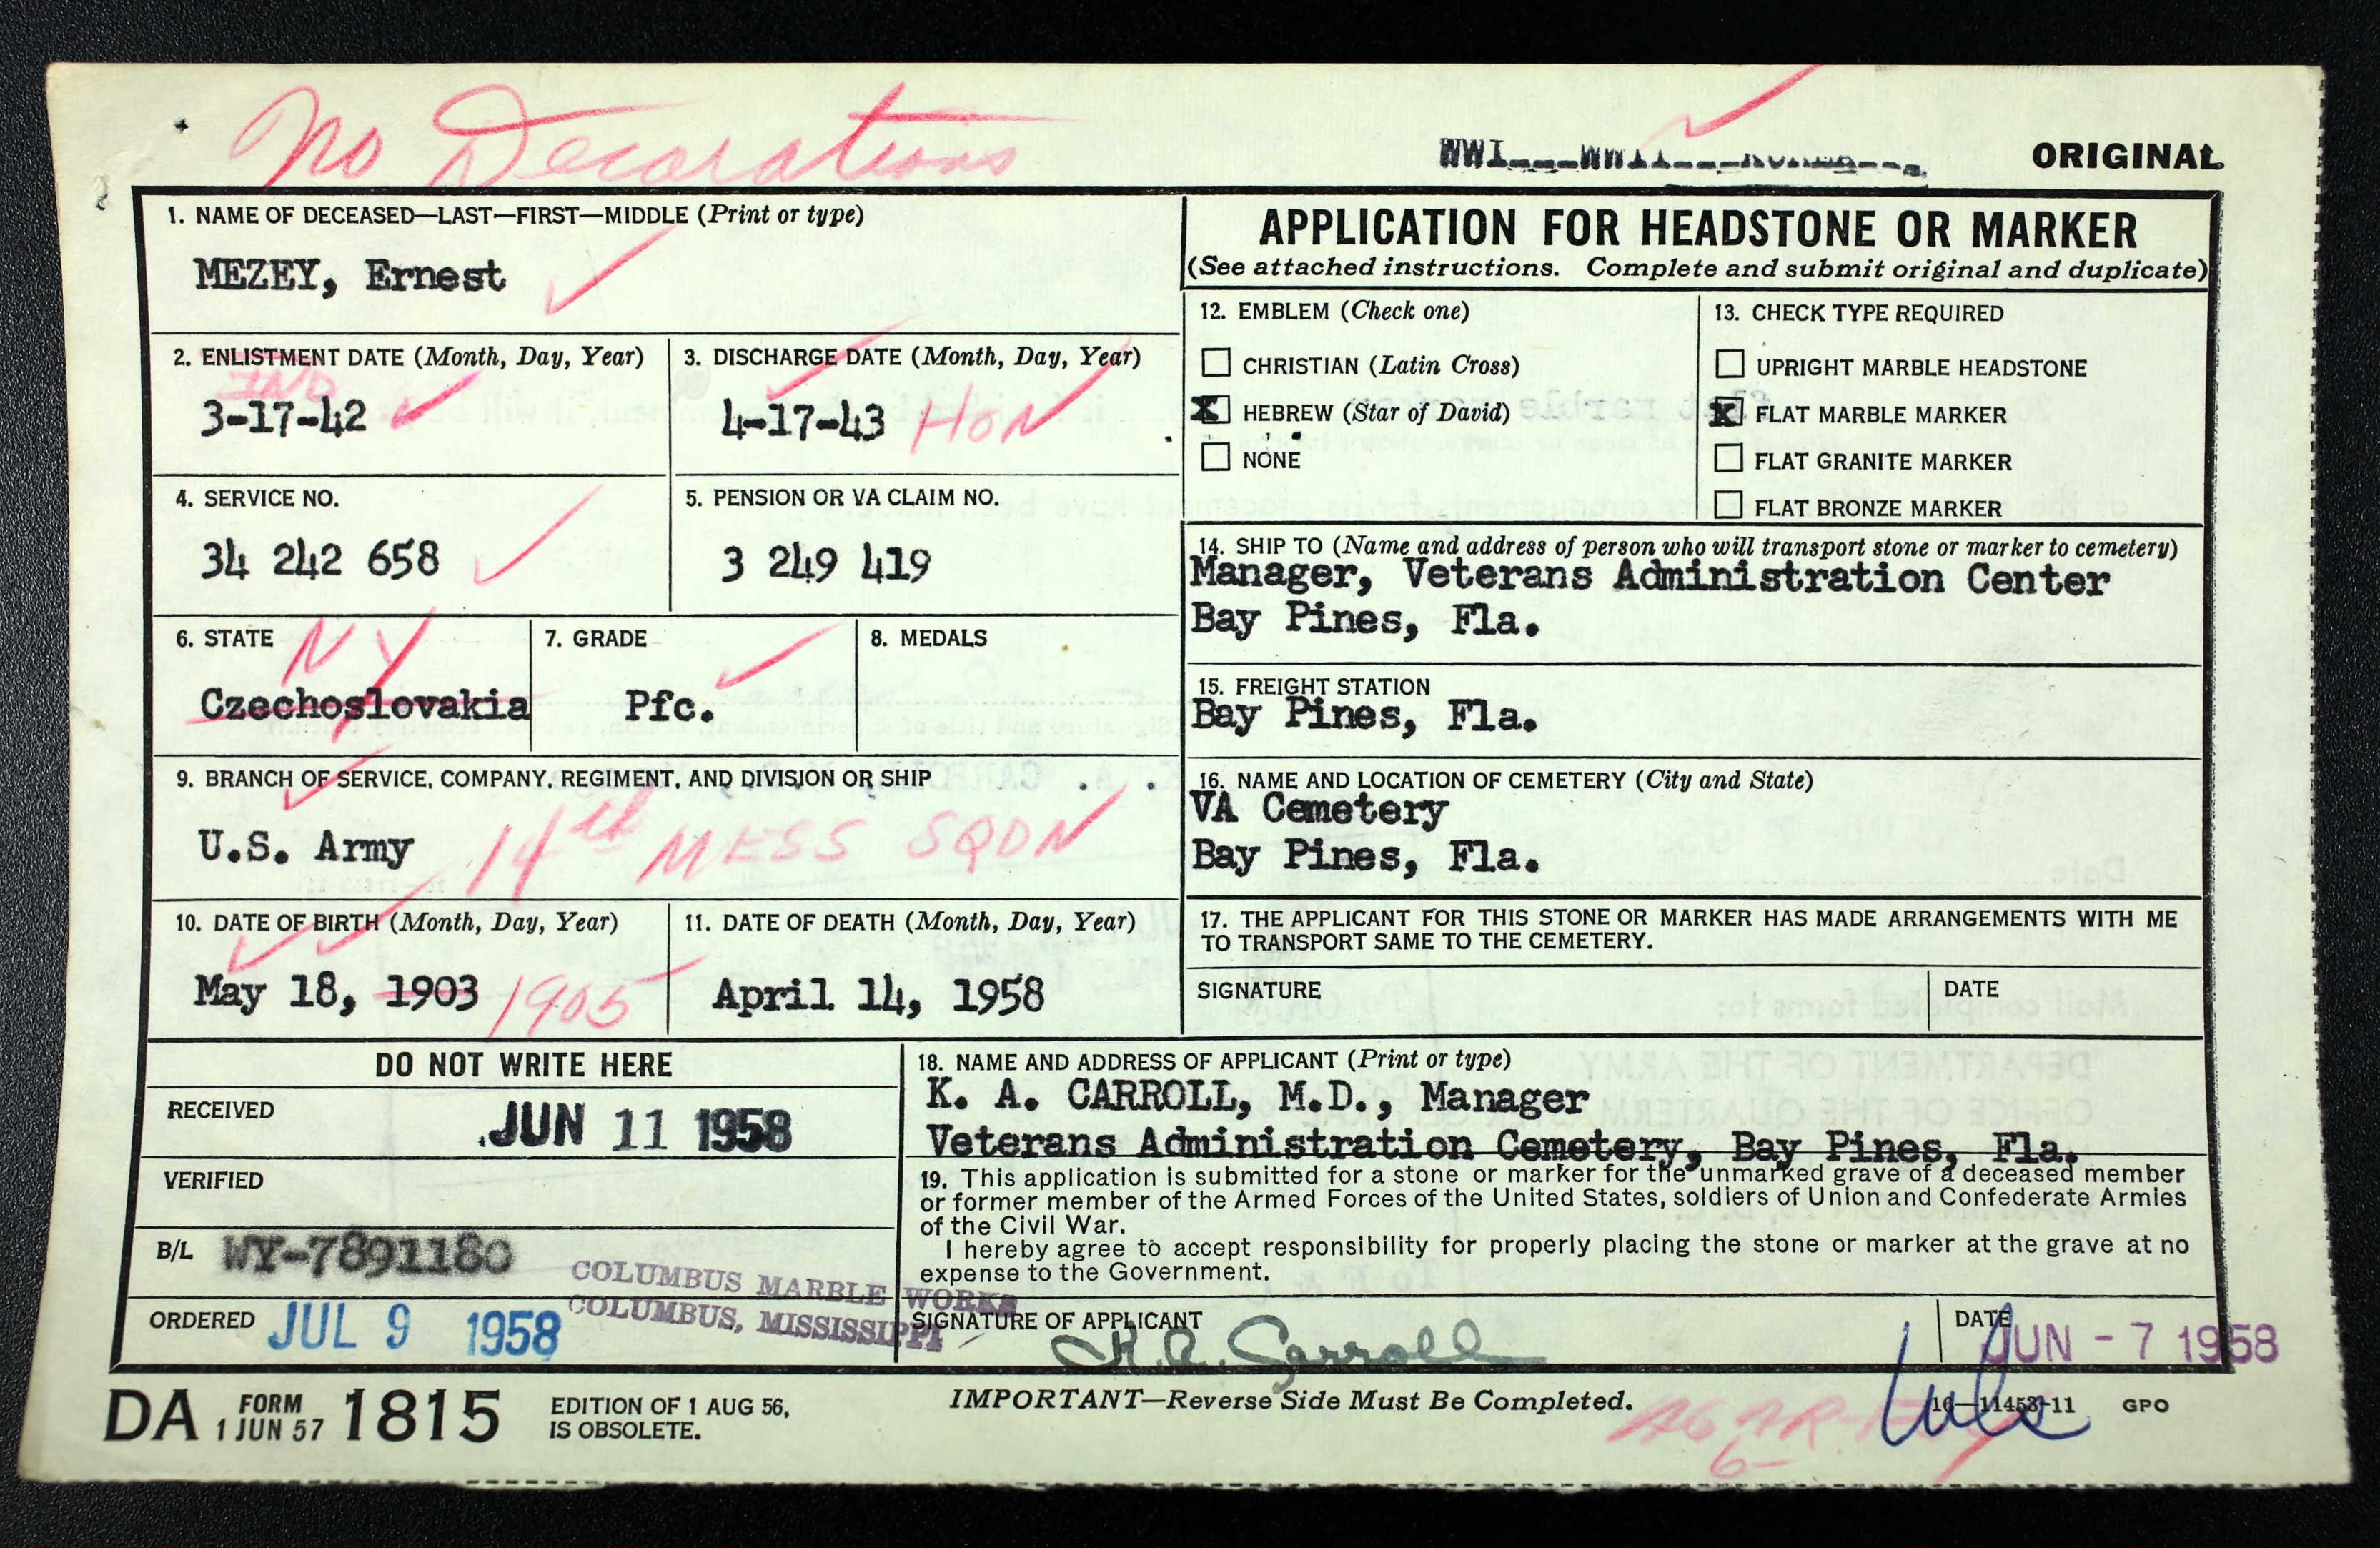 No Decorations
WWI___WWII___KOREA___
ORIGINAL
1. NAME OF DECEASED—LAST—FIRST—MIDDLE (Print or type)
MEZEY, Ernest
2. ENLISTMENT DATE (Month, Day, Year)
IND
3-17-42
3. DISCHARGE DATE (Month, Day, Year)
4-17-43 HON
4. SERVICE NO.
34 242 658
5. PENSION OR VA CLAIM NO.
3 249 419
6. STATE
NY
Czechoslovakia
7. GRADE
Pfc.
8. MEDALS
9. BRANCH OF SERVICE, COMPANY, REGIMENT, AND DIVISION OR SHIP
U.S. Army 14th MESS SQDN
10. DATE OF BIRTH (Month, Day, Year)
May 18, 1903 1905
11. DATE OF DEATH (Month, Day, Year)
April 14, 1958
APPLICATION FOR HEADSTONE OR MARKER
(See attached instructions. Complete and submit original and duplicate)
12. EMBLEM (Check one)
CHRISTIAN (Latin Cross)
X HEBREW (Star of David)
NONE
13. CHECK TYPE REQUIRED
UPRIGHT MARBLE HEADSTONE
X FLAT MARBLE MARKER
FLAT GRANITE MARKER
FLAT BRONZE MARKER
14. SHIP TO (Name and address of person who will transport stone or marker to cemetery)
Manager, Veterans Administration Center
Bay Pines, Fla.
15. FREIGHT STATION
Bay Pines, Fla.
16. NAME AND LOCATION OF CEMETERY (City and State)
VA Cemetery
Bay Pines, Fla.
17. THE APPLICANT FOR THIS STONE OR MARKER HAS MADE ARRANGEMENTS WITH ME
TO TRANSPORT SAME TO THE CEMETERY.
SIGNATURE
DATE
DO NOT WRITE HERE
RECEIVED
JUN 11 1958
VERIFIED
B/L WY-7891180
COLUMBUS MARBLE WORKS
COLUMBUS, MISSISSIPPI
ORDERED JUL 9 1958
18. NAME AND ADDRESS OF APPLICANT (Print or type)
K. A. CARROLL, M.D., Manager
Veterans Administration Cemetery, Bay Pines, Fla.
19. This application is submitted for a stone or marker for the unmarked grave of a deceased member
or former member of the Armed Forces of the United States, soldiers of Union and Confederate Armies
of the Civil War.
I hereby agree to accept responsibility for properly placing the stone or marker at the grave at no
expense to the Government.
SIGNATURE OF APPLICANT
K.A. Carroll
DATE
JUN - 7 1958
DA FORM 1 JUN 57 1815
EDITION OF 1 AUG 56,
IS OBSOLETE.
IMPORTANT—Reverse Side Must Be Completed.
16—11453-11 GPO